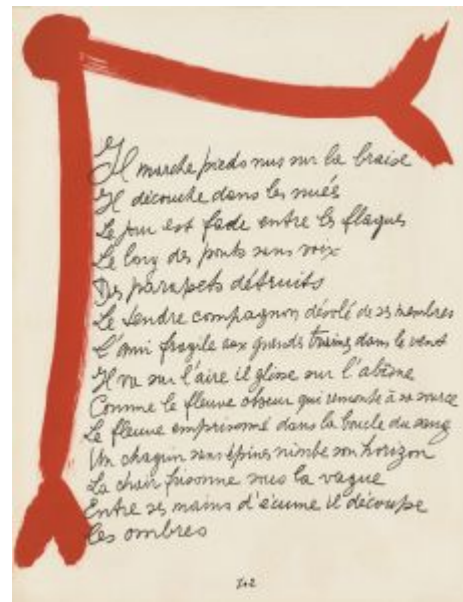 Il marche pieds nus sur la braise
Il découche dans les nuées
Le jour est fade entre les flaques
Le long des ponts sans voix
Des parapets détruits
Le tendre compagnon dévolé de ses membres
L'ami fragile aux grands dans le vent
Il va sur l'aire il glisse sur l'abîme
Comme le fleuve obscur qui remonte à sa source
Le fleuve emprisonné dans la boucle du sang
Un chagrin sans épines nimbe son horizon
La chair frissonne sous la vague
Entre ses mains d'écume il découpe
les ombres
102